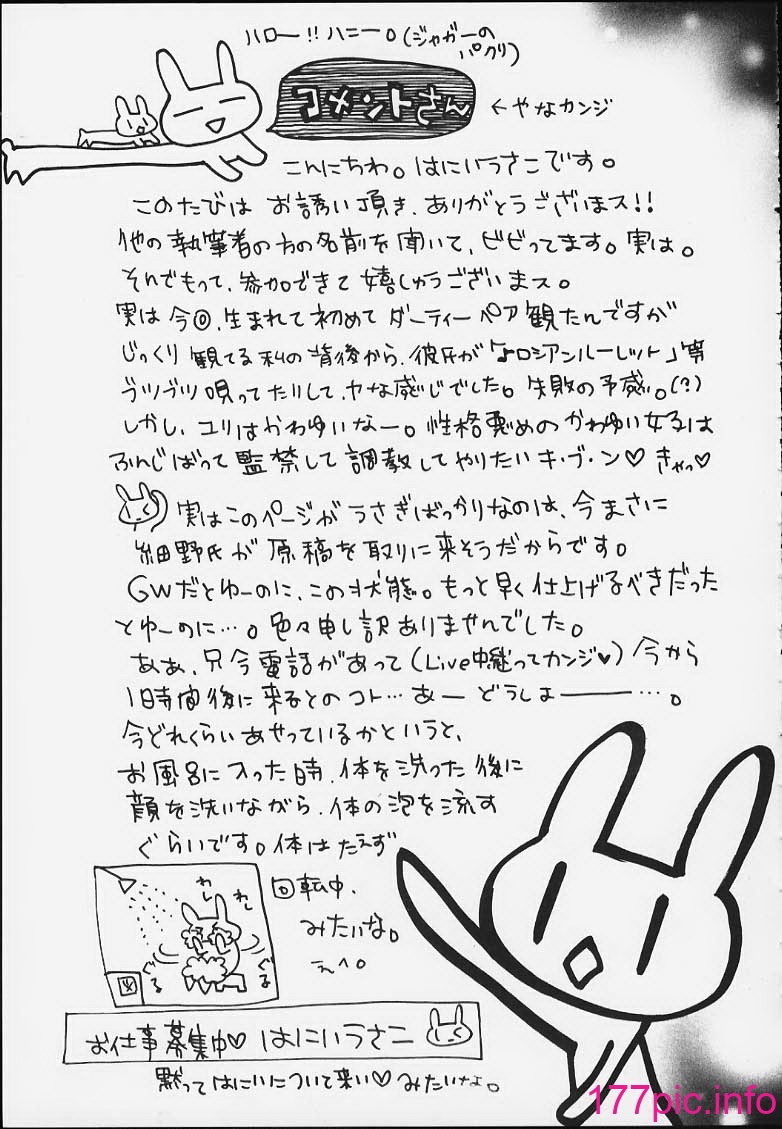 ハロー!!ハニー。(ジャガーの
パクリ)
コメントさん
←やなカンジ
こんにちわ。はにいうさこです。
このたびは お誘い頂き、ありがとうございまス!!
他の執筆者の方の名前を聞いて、ビビってます。実は。
それでもって、参加できて嬉しゅうございまス。
実は今回、生まれて初めて ダーティーペア観たんですが
じっくり観てる私の背後から、彼氏が「ロシアンルーレット」等
ブツブツ唄ってたりして、ヤな感じでした。失敗の予感。(?)
しかし、ユリはかわゆいなー。性格悪めのかわゆい女子は
ふんじばって監禁して調教してやりたいキ・ブ・ン♡きゃっ♡
実はこのページがうさぎばっかりなのは、今まさに
細野氏が原稿を取りに来そうだからです。
GWだとゆーのに、この状態。もっと早く仕上げるべきだった
とゆーのに…。色々申し訳ありませんでした。
ああ、只今電話があって(Live中継ってカンジ♡)今から
1時間後に来るとのコト…あー どうしまーーー…。
今どれくらいあせっているかというと、
お風呂に入った時、体を洗った後に
顔を洗いながら、体の泡を流す
ぐらいです。体はたえず
回転中
みたいな。
えへ。
わし
わし
ぐる
ぐる
お仕事募集中♡ はにいうさこ
黙ってはにいについて来い♡みたいな。
177pic.info